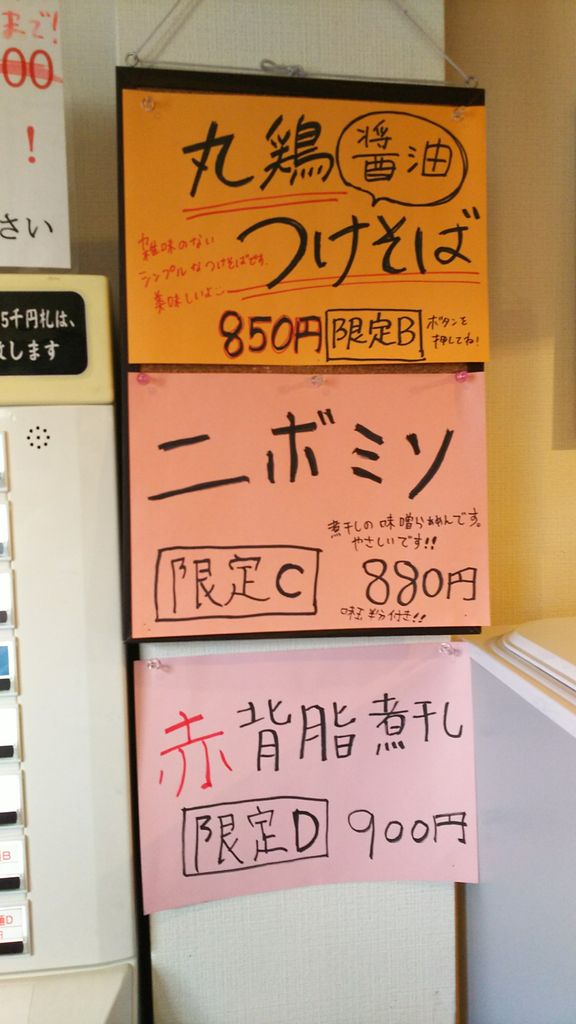 まで!
00
!
さい
5千円札は、
します
丸鶏 醤油
つけそば
雑味のない
シンプルなつけそばです。
美味しいよ
850円 限定B ボタンを
押してね!
ニボミソ
煮干しの味噌らぁめんです。
やさしいです!!
限定C 880円
味玉半分付き!!
赤背脂煮干し
限定D 900円
B
D